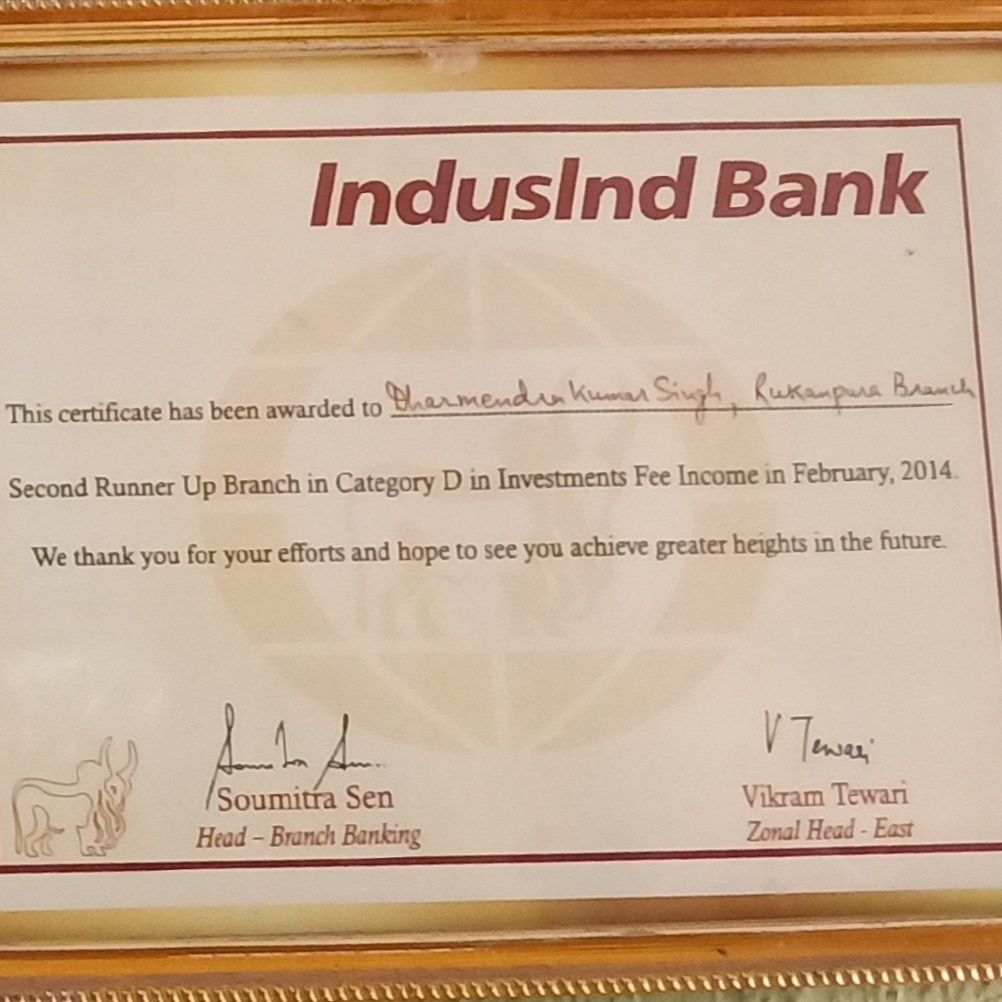 IndusInd Bank
This certificate has been awarded to Dharmendra Kumar Singh, Rukanpura Branch
Second Runner Up Branch in Category D in Investments Fee Income in February, 2014.
We thank you for your efforts and hope to see you achieve greater heights in the future.
Soumitra Sen V Tewari
Soumitra Sen Vikram Tewari
Head – Branch Banking Zonal Head - East